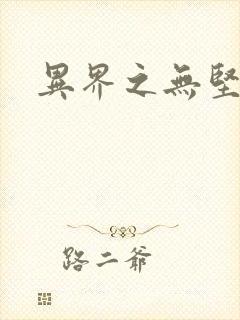 異界之無堅
路二爺